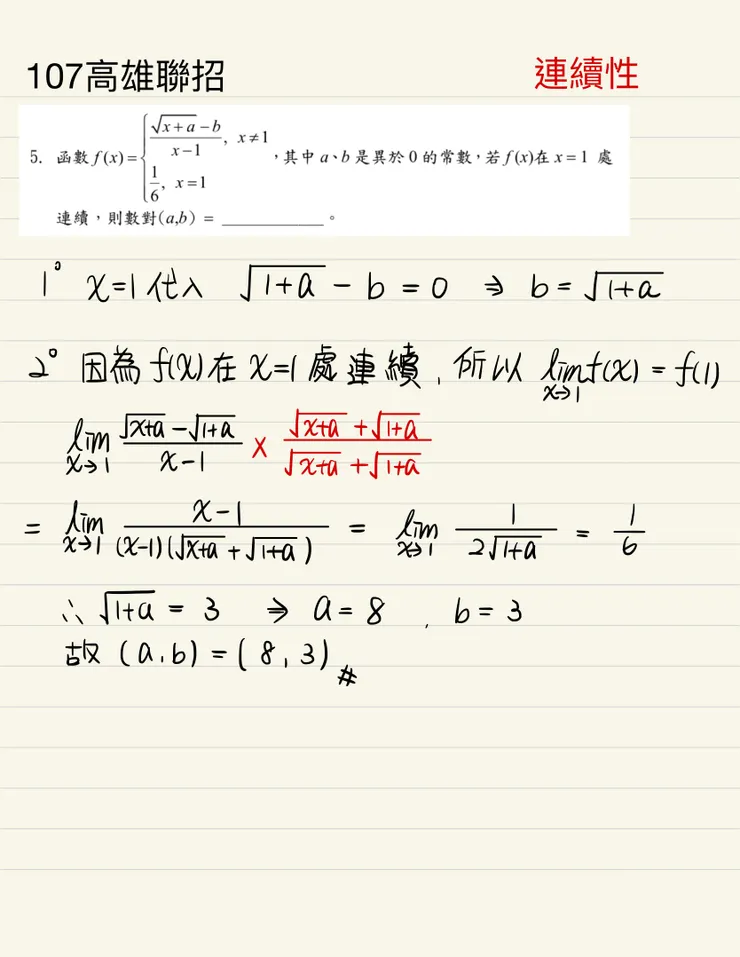 107高雄聯招
連續性
5. 函數 f(x) = { (√(x+a) − b)/(x−1), x≠1
1/6, x=1
,其中 a、b 是異於 0 的常數,若 f(x)在 x=1 處
連續,則數對(a,b) = ____________。
1° x=1 代入 √(1+a) − b = 0 ⇒ b = √(1+a)
2° 因為 f(x) 在 x=1 處連續, 所以 lim_{x→1} f(x) = f(1)
lim_{x→1} (√(x+a) − √(1+a))/(x−1) × (√(x+a) + √(1+a))/(√(x+a) + √(1+a))
= lim_{x→1} (x−1)/((x−1)(√(x+a) + √(1+a))) = lim_{x→1} 1/(2√(1+a)) = 1/6
∴ √(1+a) = 3 ⇒ a = 8 , b = 3
故 (a,b) = (8,3) #